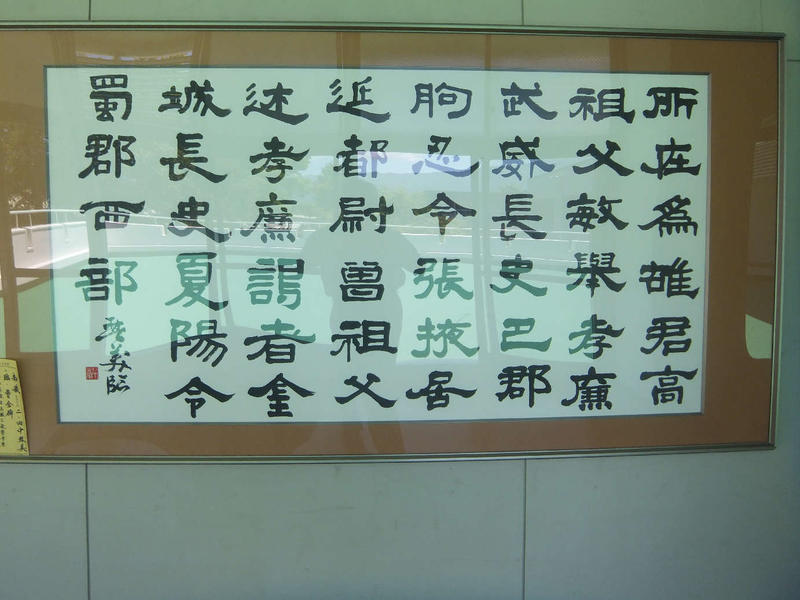 所在為雄君高
祖父敏舉孝廉
武威長史巴郡
朐忍令張掖居
延都尉曾祖父
述孝廉謁者金
城長史夏陽令
蜀郡西部
美臨
臨曹全碑